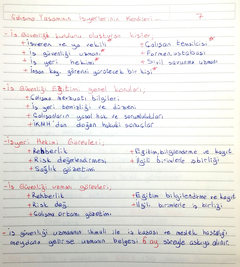 Çalışma Yasamının İşyerlerinin Kendimi... 7
- İş Güvenliği kurulunu oluşturan kişiler;
+ İşveren ve ya vekili + Çalışan temsilcisi
+ İş güvenliği uzmanı + Formen, ustabaşı
+ İş yeri hekimi + Sivil savunma uzmanı
+ İnsan kay. görevini yürütecek bir kişi
- İş Güvenliği Eğitimi genel konuları;
+ Çalışma mevzuatı bilgileri
+ İş yeri temizliği ve düzeni
+ Çalışanların yasal hak ve sorumlulukları
+ İKMH'dan doğan hukuki sonuçlar
- İşyeri Hekimi Görevleri;
+ Rehberlik + Eğitim, bilgilendirme ve kayıt
+ Risk değerlendirmesi + İlgili birimlerle işbirliği
+ Sağlık gözetimi
- İş Güvenliği uzmanı görevleri;
+ Rehberlik + Eğitim, bilgilendirme ve kayıt
+ Risk değ. + İlgili birimlerle iş birliği
+ Çalışma ortamı gözetimi
- İş güvenliği uzmanının ihmali ile iş kazası ve meslek hastalığı
meydana gelirse uzmanın belgesi 6 ay süreyle askıya alınır.